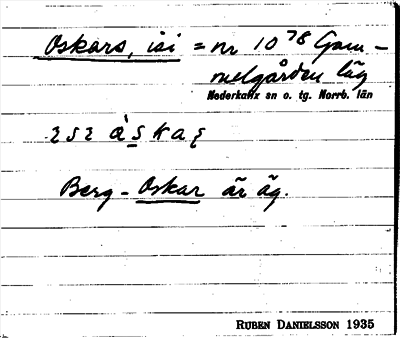 Oskars, isi = nr 10⁷⁸ Gam-
melgården läg
Nederkalix sn o. tg. Norrb. län
Berg-Oskar är äg.
RUBEN DANIELSSON 1935